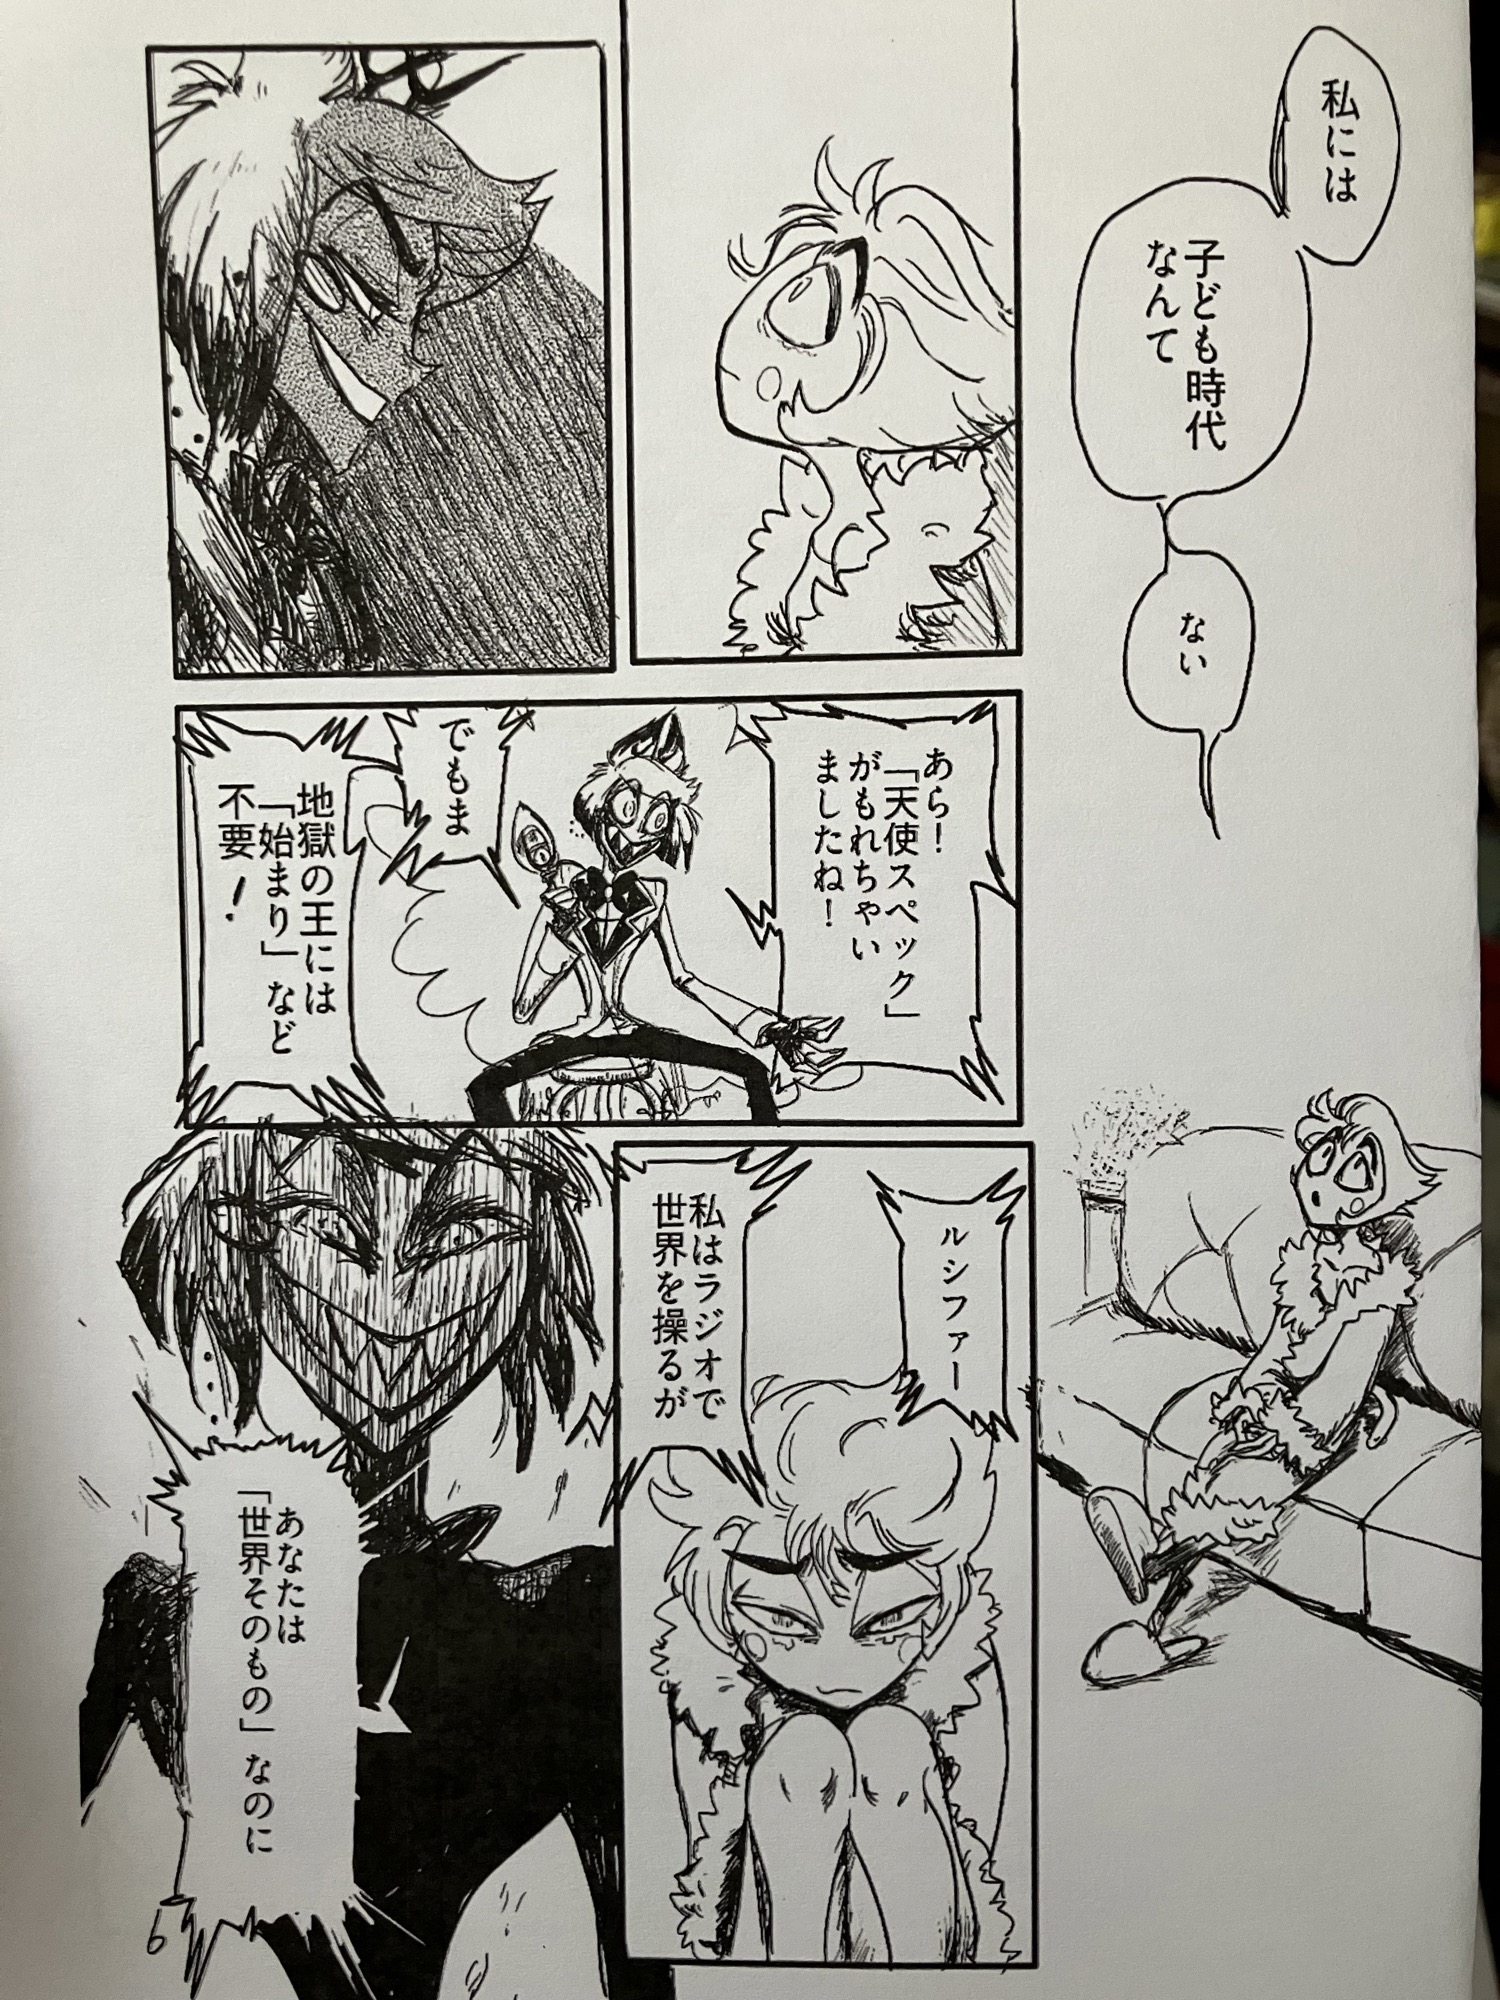 私には
子ども時代
なんて
ない
あら！
「天使スペック」
がもれちゃい
ましたね！
でもま
地獄の王には
「始まり」など
不要！
ルシファー
私はラジオで
世界を操るが
あなたは
「世界そのもの」なのに
6